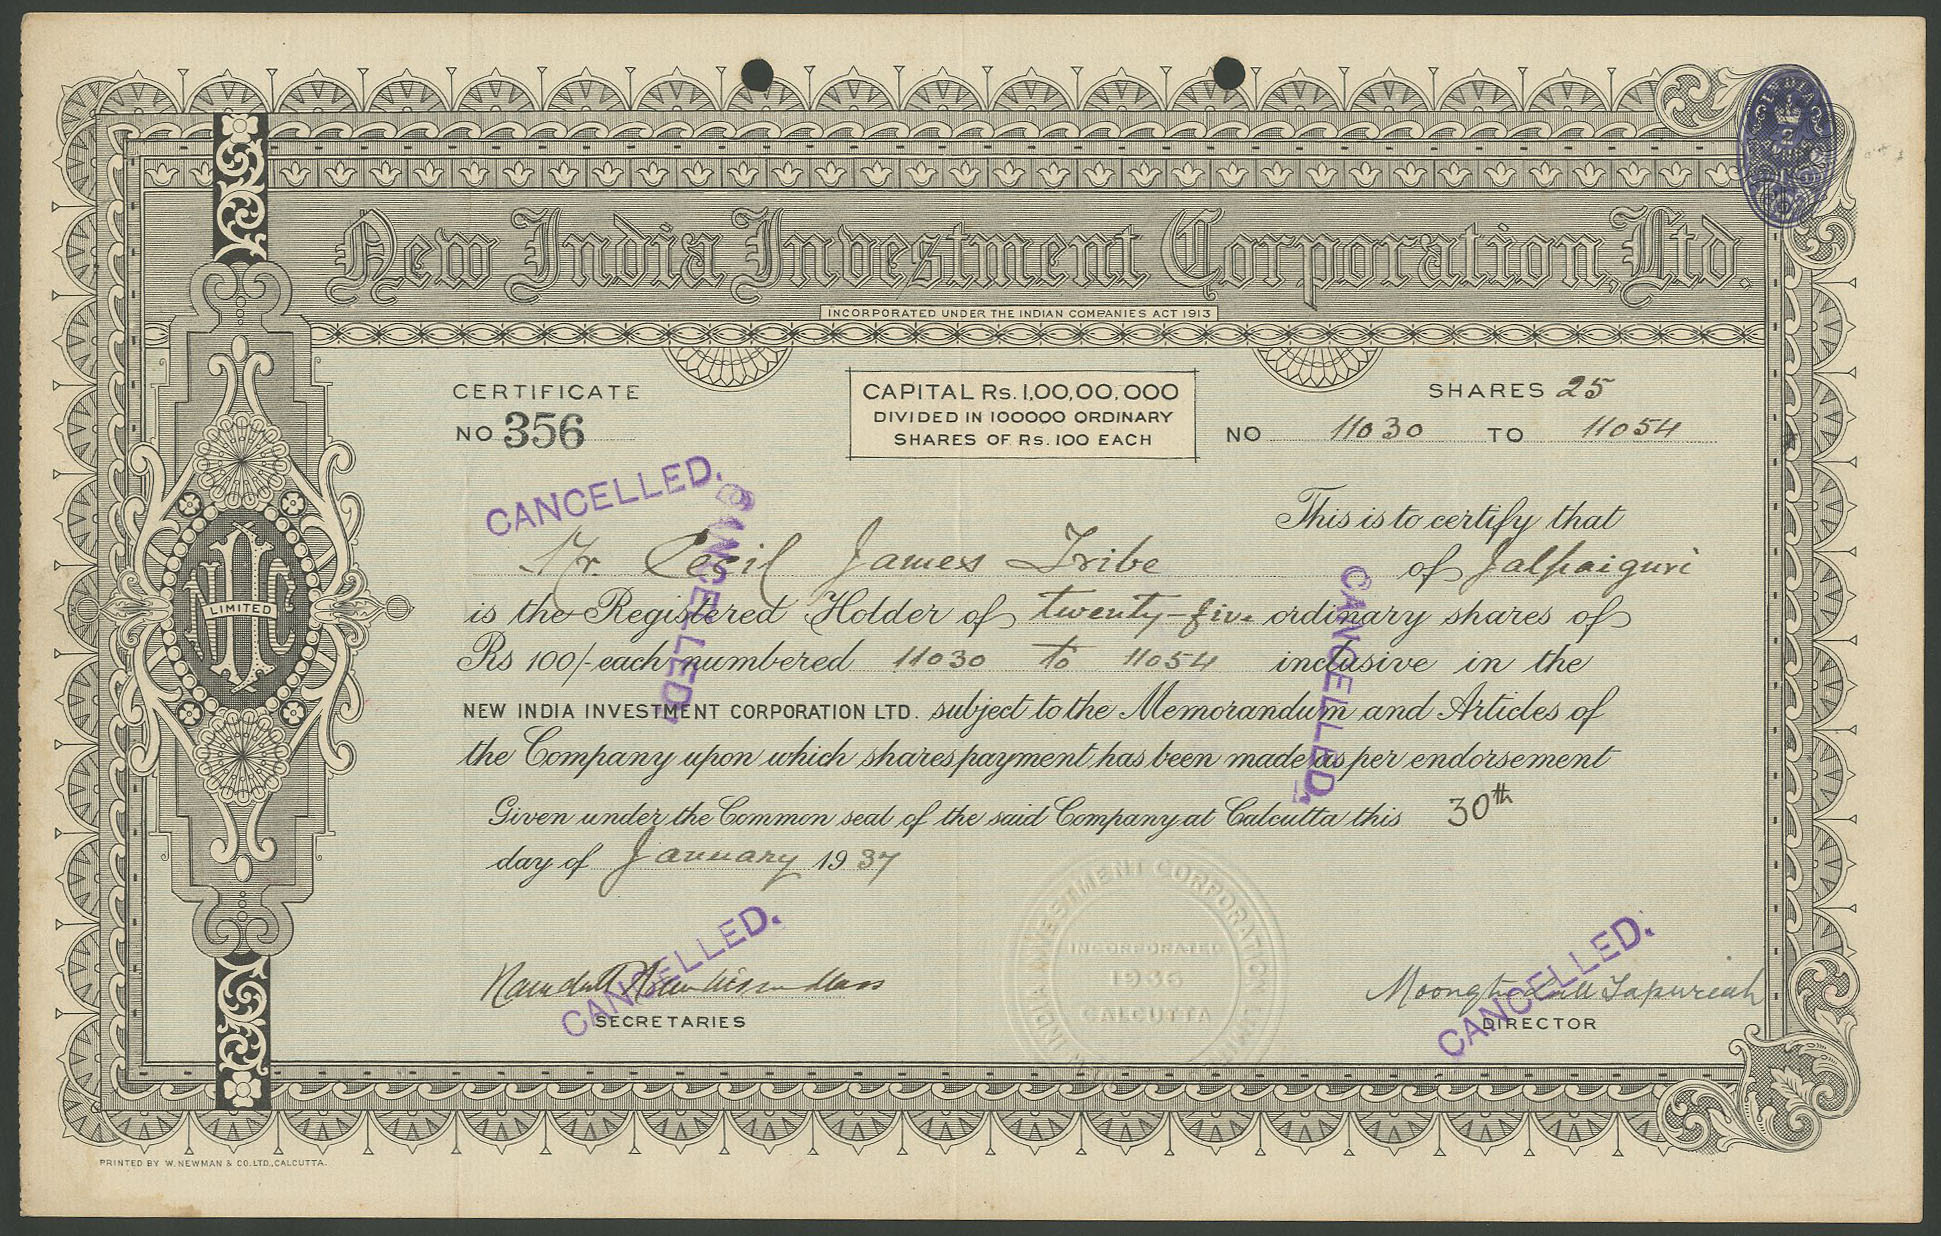 New India Investment Corporation, Ltd.
INCORPORATED UNDER THE INDIAN COMPANIES ACT 1913
CERTIFICATE
NO 356
CAPITAL Rs. 1,00,00,000
DIVIDED IN 100000 ORDINARY
SHARES OF Rs. 100 EACH
SHARES 25
NO 11030 TO 11054
CANCELLED.
CANCELLED.
This is to certify that
Mr. Cecil James Tribe of Jalpaiguri
is the Registered Holder of twenty-five ordinary shares of
Rs 100/- each numbered 11030 to 11054 inclusive in the
NEW INDIA INVESTMENT CORPORATION LTD. subject to the Memorandum and Articles of
the Company upon which shares payment has been made as per endorsement
CANCELLED.
Given under the Common seal of the said Company at Calcutta this 30th
day of January 1937
NIIC
LIMITED
INDIA INVESTMENT CORPORATION LIMI
INCORPORATED
1936
CALCUTTA
CANCELLED.
SECRETARIES
CANCELLED.
DIRECTOR
PRINTED BY W. NEWMAN & CO. LTD., CALCUTTA.